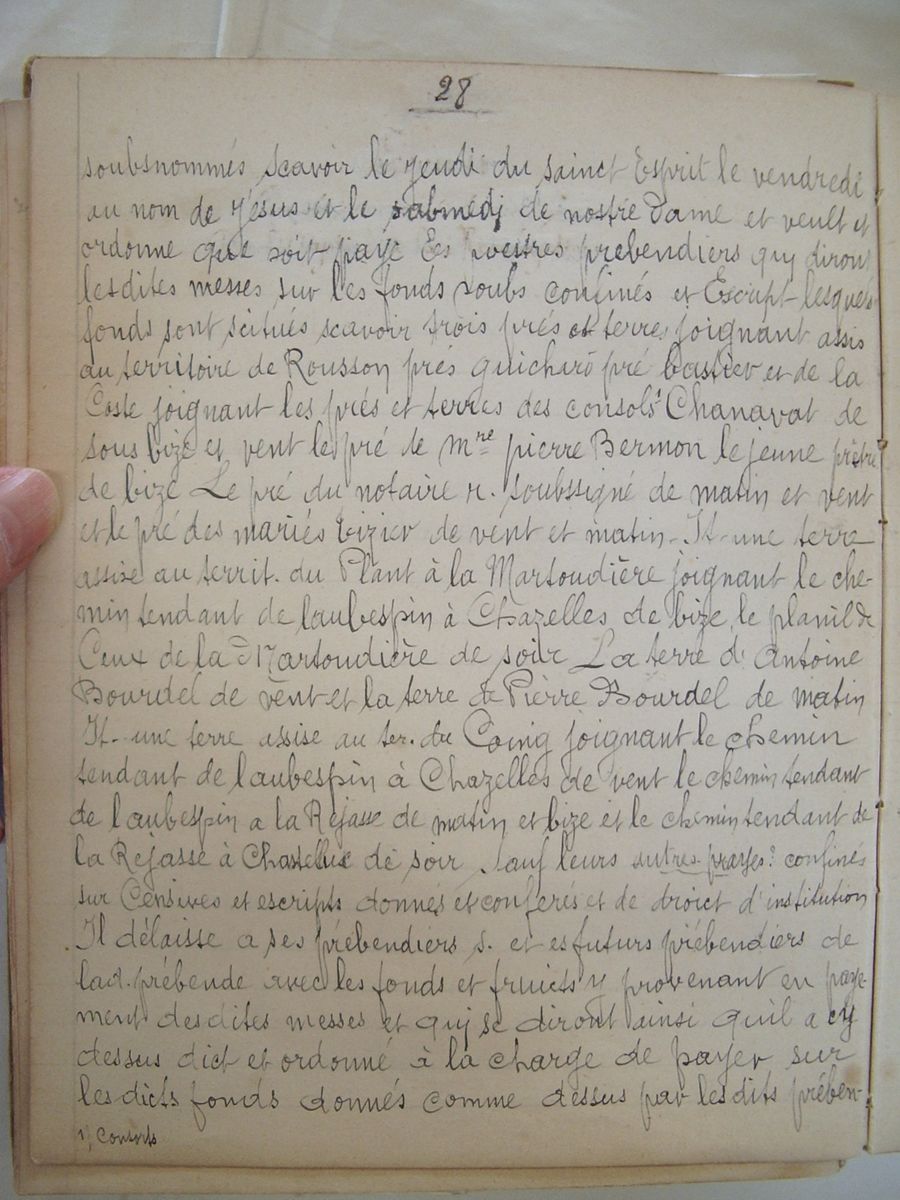 28
soubsnommés scavoir le jeudi du sainct Esprit le vendredi
au nom de Jésus et le sabmedj de nostre Dame et veult et
ordonne que soit paye Ees prestres prebendiers quy diront
lesdites messes sur les fonds soubs confinés et Escript lesquels
fonds sont scitués scavoir trois prés et terres joignant assis
au territoire de Rousson prés pré et de la
Coste joignant les prés et terres des consols¹ Chanavat de
sous bize et vent le pré de mre pierre Bermon le jeune prêtre
de bize Le pré du notaire r. soubssigné de matin et vent
et le pré des mariés bizier de vent et matin - It - une terre
assize au territ. du Plant à la Martoudière joignant le che-
min tendant de laubespin à Chazelles de bize le planil de
Ceux de la Martoudière de soir La terre d'Antoine
Bourdel de vent et la terre de Pierre Bourdel de matin
It - une terre assise au ter. du Coing joignant le chemin
tendant de laubespin à Chazelles de vent le chemin tendant
de laubespin a la Rejasse de matin et bize et le chemin tendant de
la Rejasse à Chastellux de soir sauf leurs autres prayes? confinés
sur Censives et escripts donnés et conferés et de droict d'institution
Il délaisse a ses prébendiers s. et es futurs prébendiers de
lad. prébende avec les fonds et fruicts y provenant en paye-
ment desdites messes et quj se diront ainsi quil a cy
dessus dict et ordonné à la charge de payer sur
les dicts fonds donnés comme dessus par les dits prében-
1) Consorts